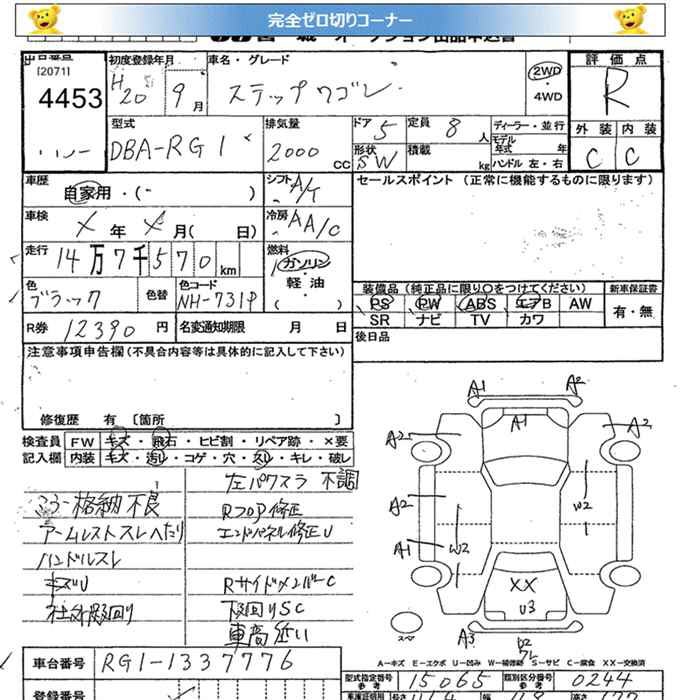 完全ゼロ切りコーナー
出品番号 初度登録年月 車名・グレード 評価点
[2071]
4453 H20 9月 ステップワゴン 2WD・4WD R
型式 排気量 ドア 5 定員 8人 ディーラー・並行 外装 内装
DBA-RG1 2000CC 形状 SW 積載 kg モデル年式 年 ハンドル 左・右 C C
車歴 自家用・( ) シフト A/T セールスポイント (正常に機能するものに限ります)
車検 年 月( 日) 冷房 AA/C
走行 14万7千570km 燃料 ガソリン・軽油・( )
色 ブラック 色替 色コード NH-731P 装備品 (純正品に限り○をつけてください) 新車保証書
PS PW ABS エアB AW 有・無
SR ナビ TV カワ
R券 12390円 名変通知期限 月 日 後日品
注意事項申告欄 (不具合内容等は具体的に記入して下さい)
修復歴 有 〔箇所 〕
検査員 FW キズ・飛石・ヒビ割・リペア跡・×要
記入欄 内装 キズ・汚レ・コゲ・穴・スレ・キレ・破レ
左パワスラ 不調
ミラー格納不良 Rフロア修正
アームレストスレヘたり エンドパネル修正U
ハンドルスレ
キズU RサイドメンバーC
下回りSC
車高低い
A1 A2
A1
A2 A2
A2 W2
A1 W2
XX
U3
スペア A3
A－キズ E－エクボ U－凹み W－補修跡 S－サビ C－腐食 XX－交換済
車台番号 RG1-1337776 型式指定番号 参考 15065 類別区分番号 参考 0244
登録番号